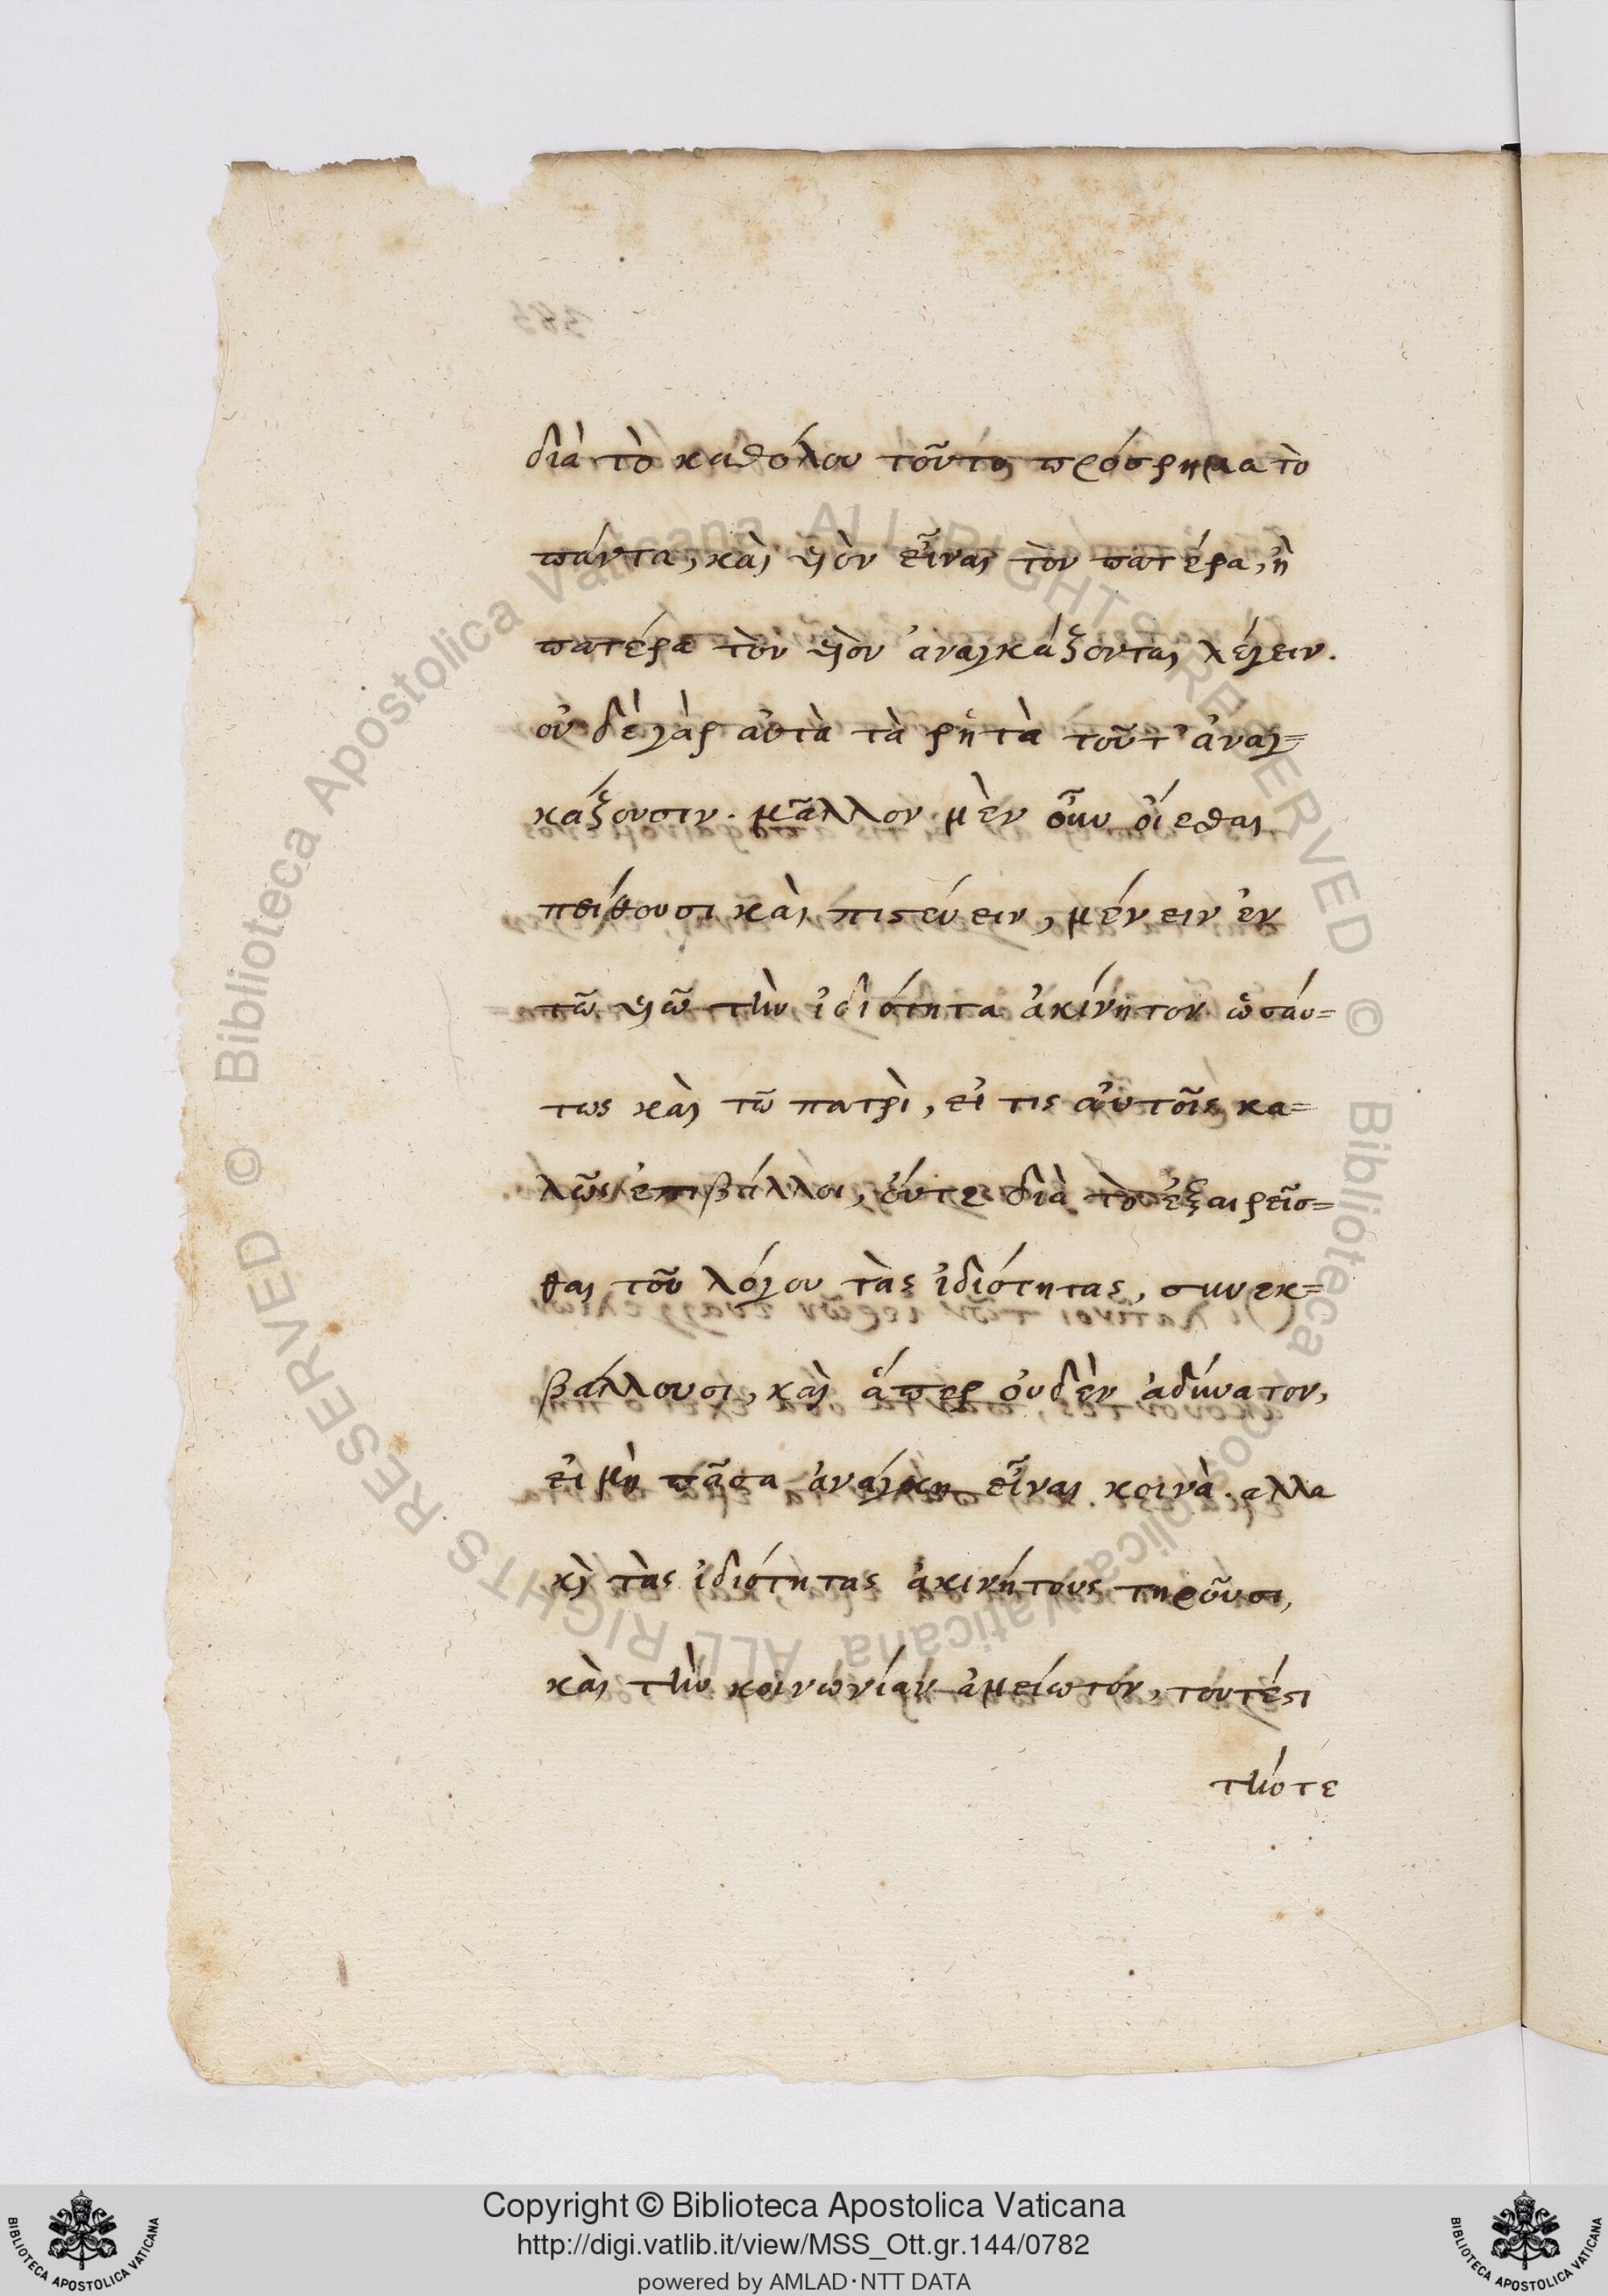 διὰ τὸ καθόλου τοῦτο πρόσρημα τὸ
πάντα, καὶ υἱὸν εἶναι τὸν πατέρα, ἢ
πατέρα τὸν υἱὸν ἀναγκάζονται λέγειν.
οὐδὲ γὰρ αὐτὰ τὰ ῥητὰ τοῦτ' ἀναγ=
κάζουσιν. μᾶλλον μὲν οὖν οἴεσθαι
πείθουσι καὶ πιστεύειν, μένειν ἐν
τῶ υἱῶ τὴν ἰδιότητα ἀκίνητον ὡσαύ=
τως καὶ τῶ πατρὶ, εἴ τις αὐτοῖς κα=
λῶς ἐπιβάλλοι, οὔτε διὰ τὸ ἐξαιρεῖσ=
θαι τοῦ λόγου τὰς ἰδιότητας, συνεκ=
βάλλουσι, καὶ ἅπερ οὐδὲν ἀδύνατον,
εἰ μὴ πᾶσα ἀνάγκη εἶναι κοινὰ. αλλα
κὶ τὰς ἰδιότητας ἀκινήτους τηροῦσι,
καὶ τὴν κοινωνίαν ἀμείωτον, τουτέστι
τήν τε
383
Copyright © Biblioteca Apostolica Vaticana
http://digi.vatlib.it/view/MSS_Ott.gr.144/0782
powered by AMLAD·NTT DATA
BIBLIOTECA APOSTOLICA VATICANA
BIBLIOTECA APOSTOLICA VATICANA
© Biblioteca Apostolica Vaticana ALL RIGHTS RESERVED
© Biblioteca Apostolica Vaticana ALL RIGHTS RESERVED